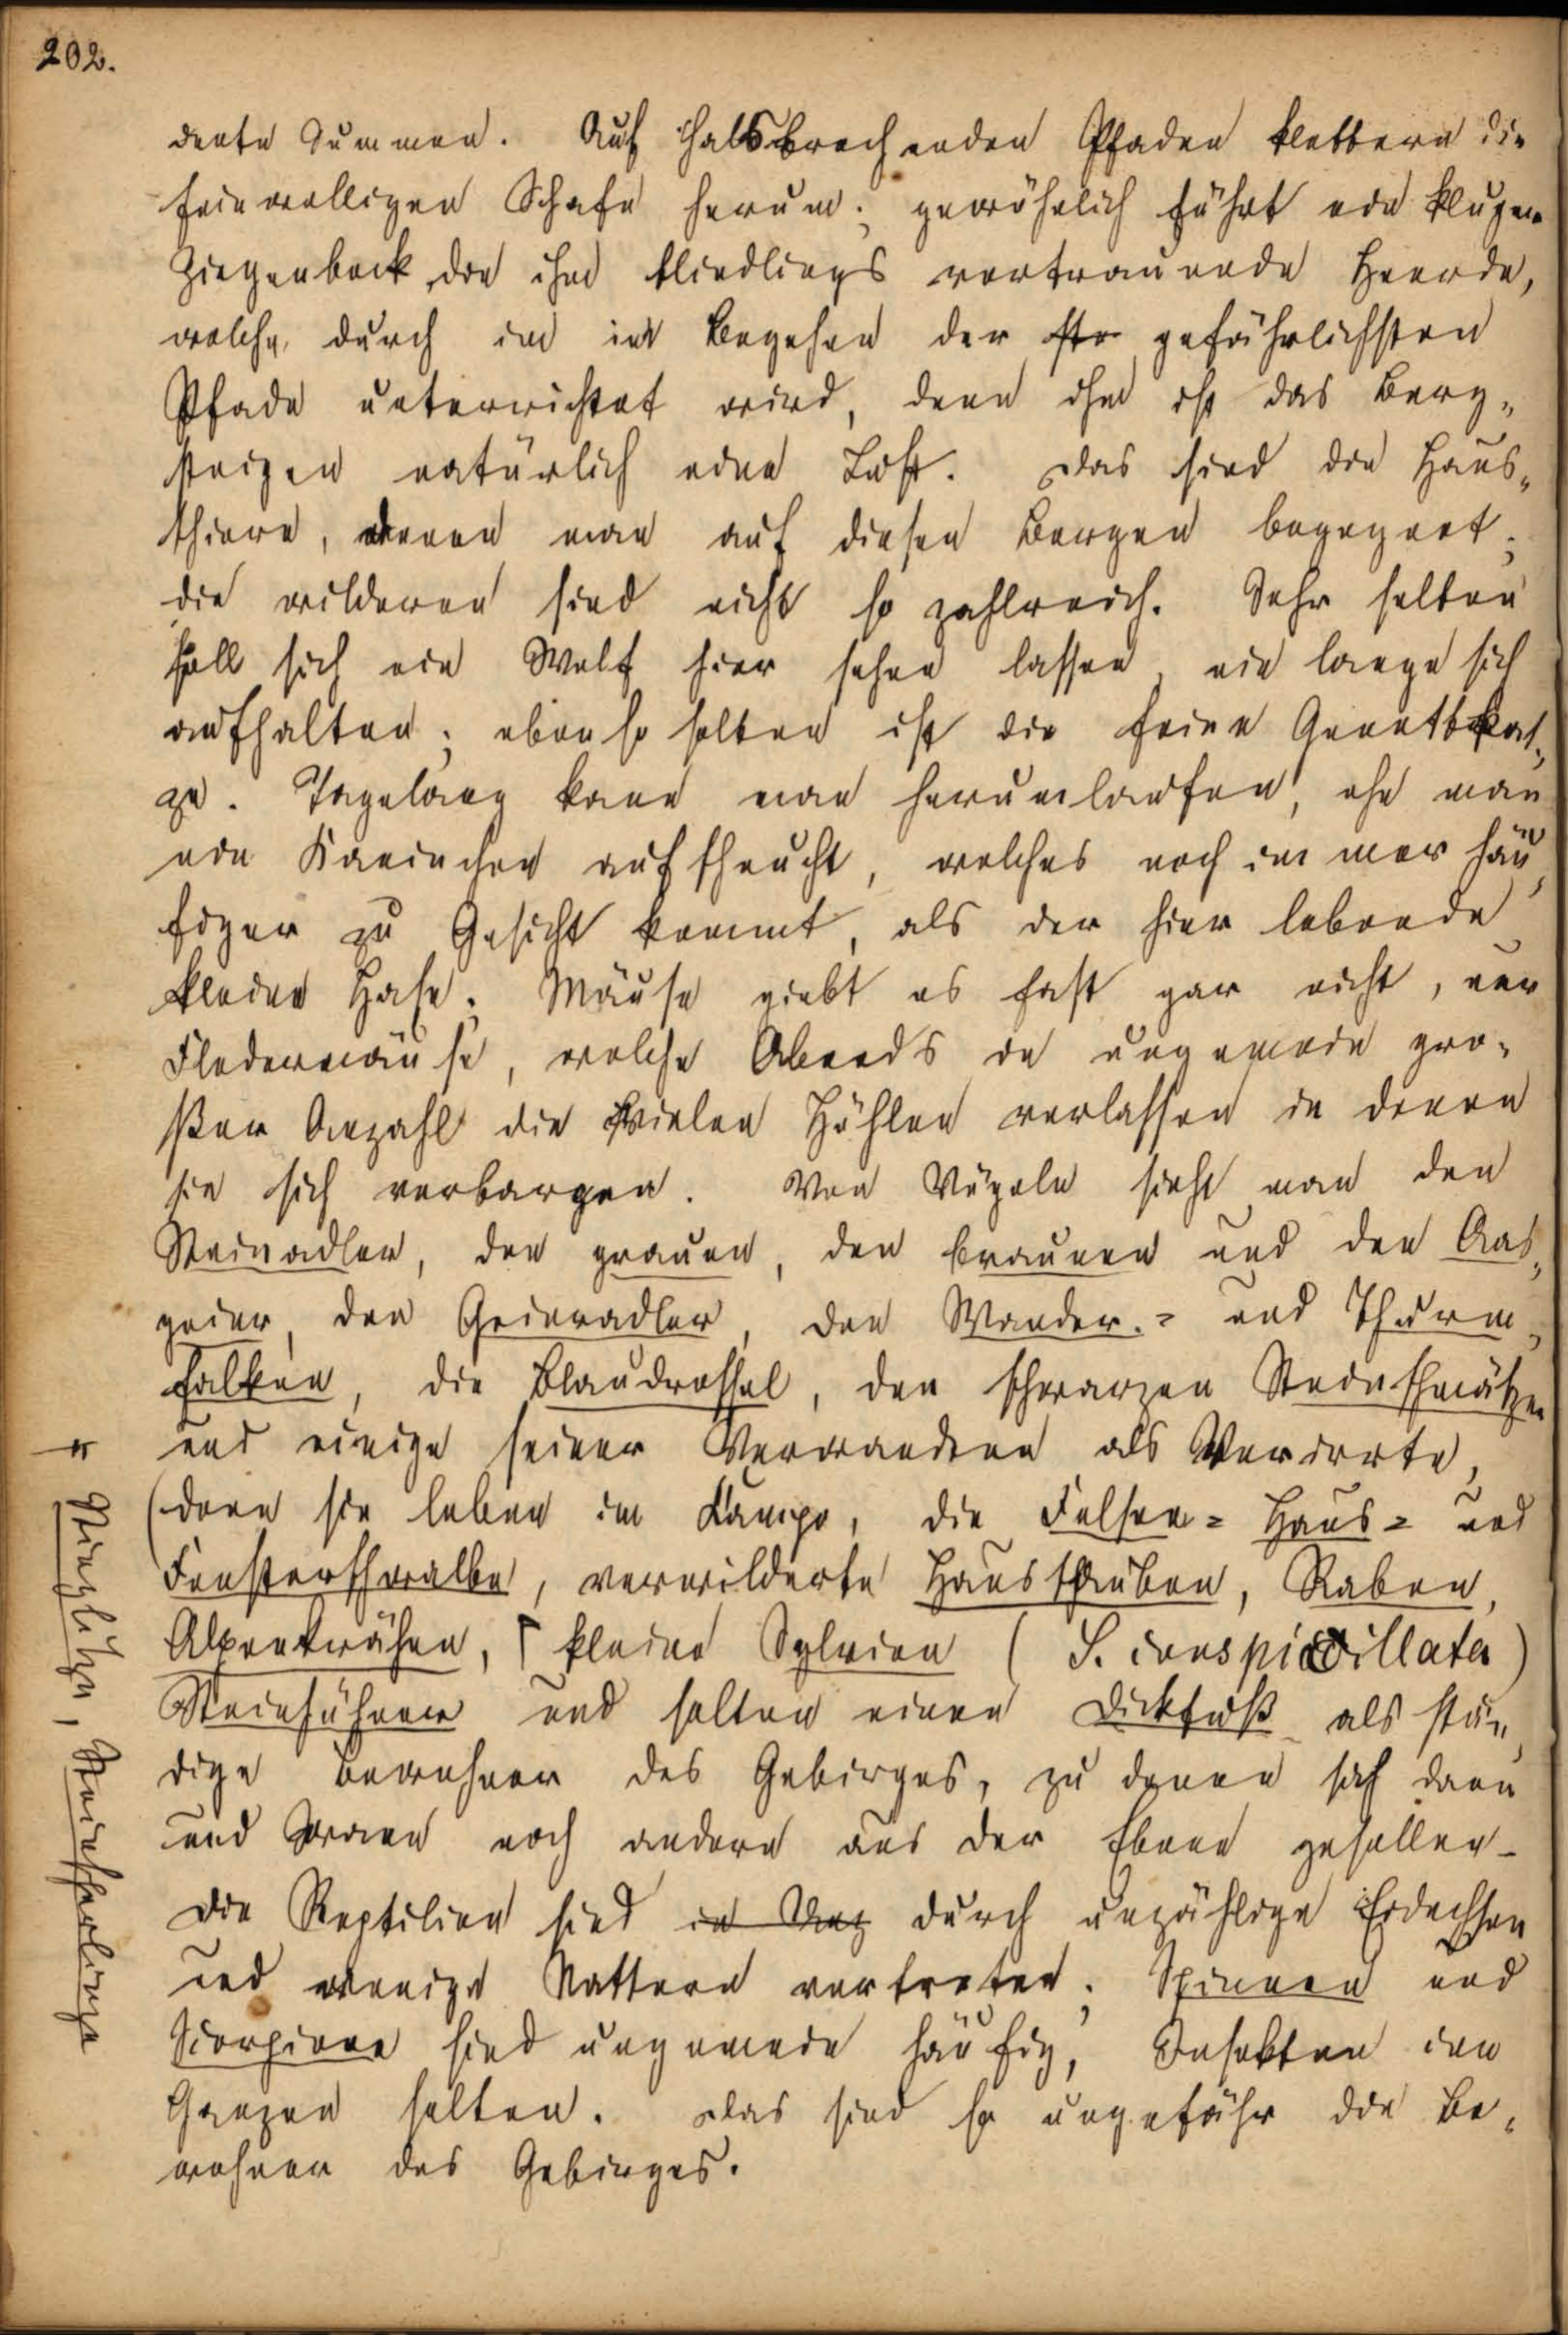 202.
dente Summen. Auf halsbrechenden Pfaden klettern die
feinwolligen Schafe herum; gewöhnlich führt ein kluger
Ziegenbock die ihm blindlings vertrauende Heerde,
welche durch ihn im Begehen der gefährlichsten
Pfade unterrichtet wird, denn ihm ist das Berg„
steigen natürlich eine Lust. Das sind die Haus„
thiere, denen man auf diesen Bergen begegnet;
die wilderen sind nicht so zahlreich. Sehr selten
soll sich ein Wolf hier sehen lassen, nie lange sich
aufhalten; ebenso selten ist die feine Genettkat„
ze. Tagelang kann man herumlaufen, ehe man
ein Kaninchen aufscheucht, welches noch immer häu„
figer zu Gesicht kommt, als der hier lebende
kleine Hase. Mäuse giebt es fast gar nicht, nur
Fledermäuse, welche Abends in ungemein gro„
ßer Anzahl die vielen Höhlen verlassen in denen
sie sich verbargen. Von Vögeln sieht man den
Steinadler, den grauen, den braunen und den Aas„
geier, den Geieradler, den Wander.= und Thurm„
falken, die Blaudrossel, den schwarzen Steinschmätzer
und einige seiner Verwandten als Verirrte,
(denn sie leben im Kampo, die Felsen= Haus= und
Fensterschwalbe, verwilderte Haustauben, Raben,
Alpenkrähen, ⌈ kleine Sylvien (S. conspicillata)
Steinhühner und selten einen Dickfuß als stän„
dige Bewohner des Gebirges, zu denen sich dann
und wann noch andere aus der Ebene gesellen.
Die Reptilien sind durch unzählige Eidechsen
und wenige Nattern vertreten; Spinnen und
Scorpione sind ungemein häufig, Insekten im
Ganzen selten. Das sind so ungefähr die Be„
wohner des Gebirges.
⌈ Stieglitze, Steinsperlinge